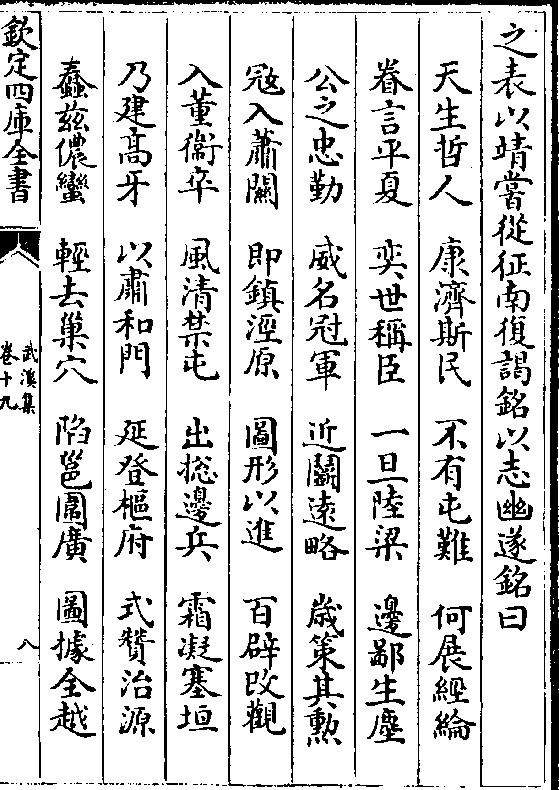 之表以靖嘗從征南復謁銘以志幽遂銘曰
天生哲人 康濟斯民 不有屯難 何展經綸
眷言平夏 奕世稱臣 一旦陸梁 邊鄙生塵
公之忠勤 威名冠軍 近關遠略 歲策其勲
寇入蕭關 即鎮涇原 圖形以進 百辟改觀
入董衞卒 風清禁屯 出揔邊兵 霜凝塞垣
乃建高牙 以肅和門 延登樞府 式贊治源
蠢茲儂蠻 輕去巢穴 陷邕圍廣 圖據全越
欽定四庫全書
武溪集
卷十九
八